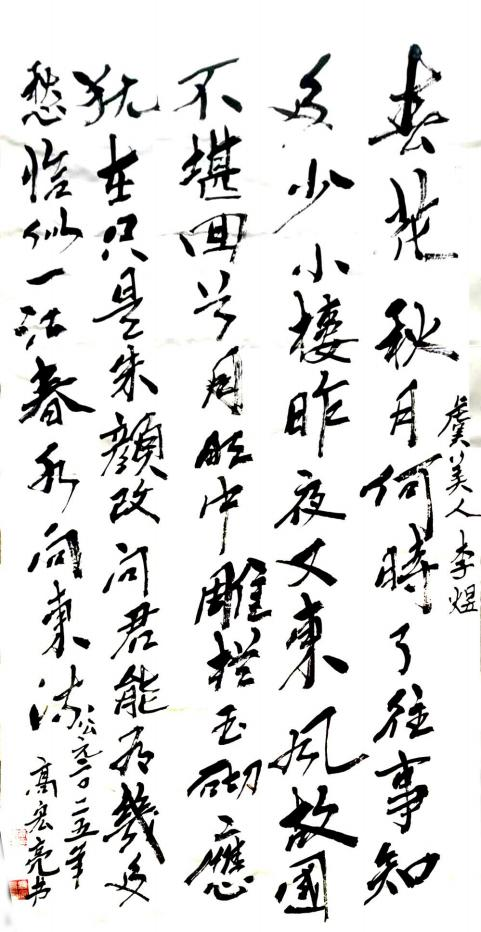 春花秋月何時了往事知
多少小樓昨夜又東風故國
不堪回首月明中雕栏玉砌應
犹在只是朱顔改问君能有幾多
愁恰似一江春水向東流
虞美人 李煜
公元二〇二五年
高宏亮书